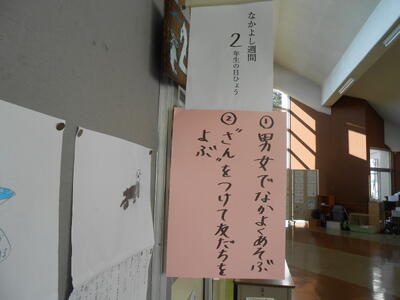 なかよし週間
2年生の目ひょう
①男女でなかよくあそぶ
②“さん”をつけて友だちを
よぶ